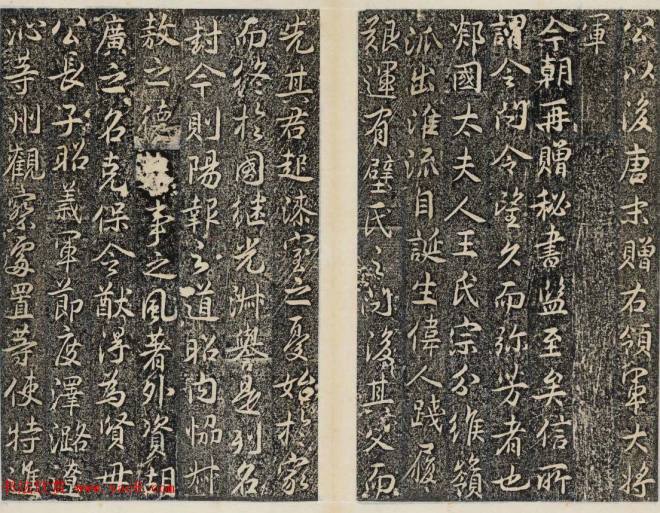 公以後唐末贈右領軍大將
軍
今朝再贈秘書監至矣信所
謂令問令望久而弥芳者也
郯國太夫人王氏宗分緱嶺
派出淮流自誕生偉人踐履
艱運有壁氏之問後其父而
先其君起漆室之憂始於家
而終於國継光淋譽是列名
封今則陽報之道昭內恊
敖之德事之風著外資胡
廣之名克保令猷得為賢毋
公長子昭義軍節度澤潞
沁等州觀察處置等使特進
书法欣赏 www.yac8.com